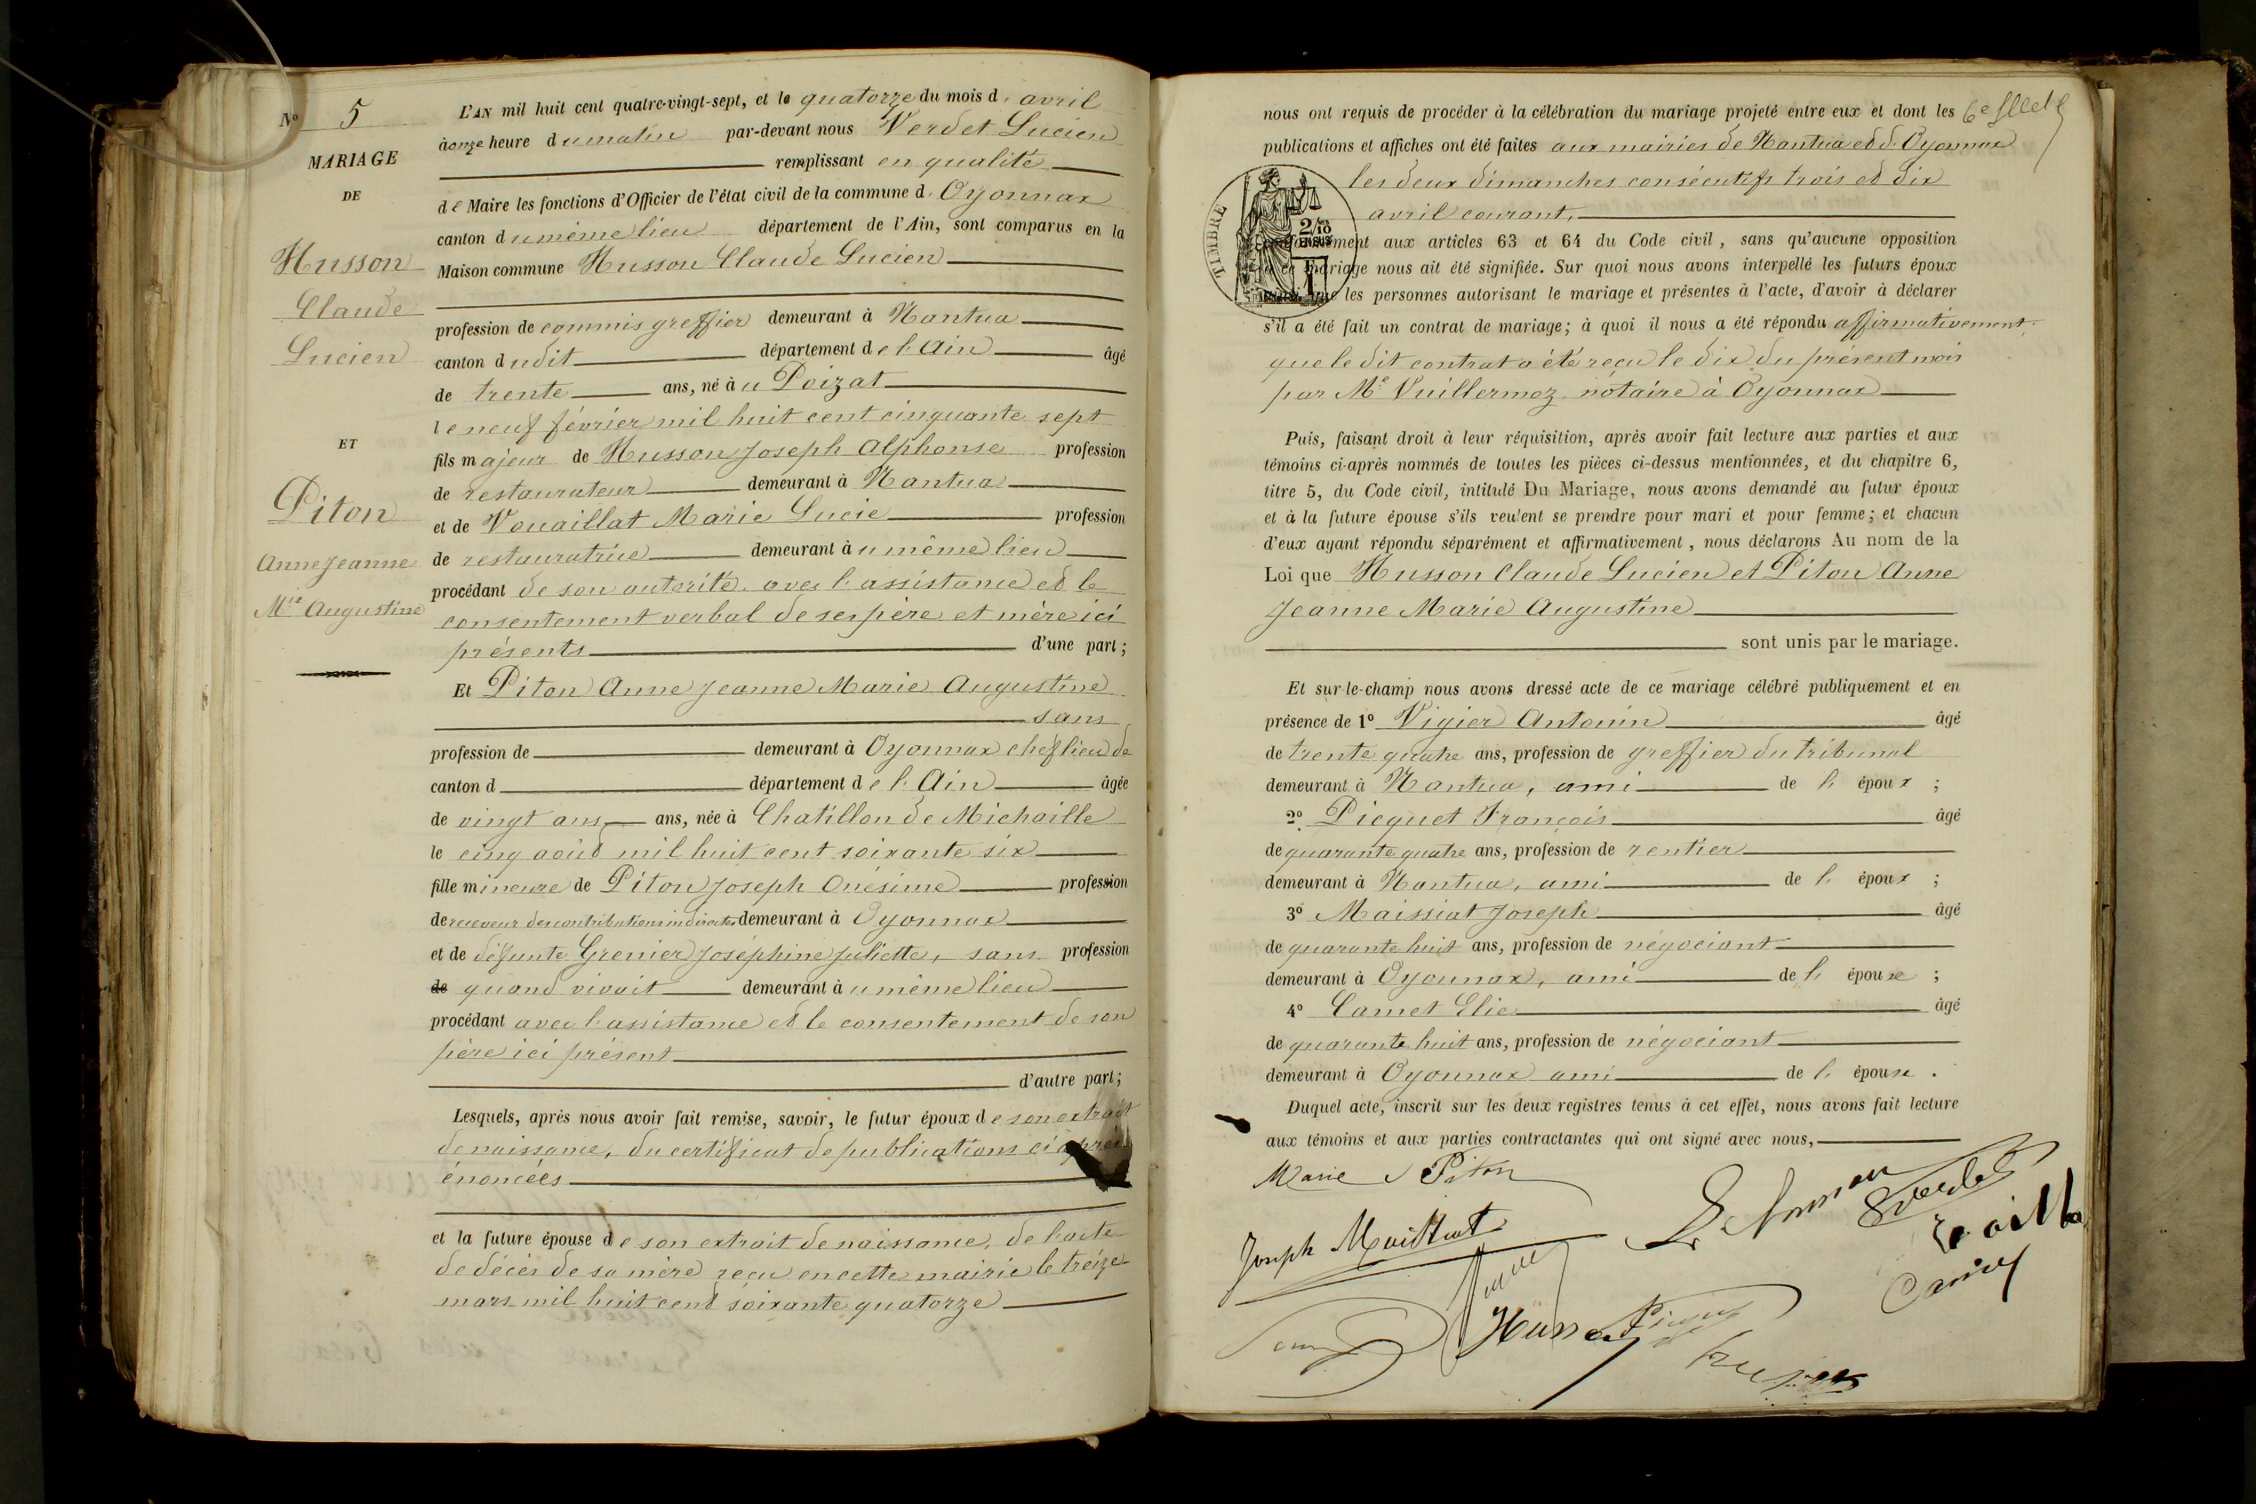 N° 5
MARIAGE
DE
Husson
Claude
Lucien
ET
Piton
Anne Jeanne
Mie Augustine
L'AN mil huit cent quatre-vingt-sept, et le quatorze du mois d' avril
à onze heure du matin par-devant nous Verdet Lucien
remplissant en qualité
de Maire les fonctions d'Officier de l'état civil de la commune d' Oyonnax
canton du même lieu département de l'Ain, sont comparus en la
Maison commune Husson Claude Lucien
profession de commis greffier demeurant à Nantua
canton dudit département de l'Ain âgé
de trente ans, né au Poizat
le neuf février mil huit cent cinquante sept
fils majeur de Husson Joseph Alphonse profession
de restaurateur demeurant à Nantua
et de Vouaillat Marie Lucie profession
de restauratrice demeurant au même lieu
procédant de son autorité avec l'assistance et le
consentement verbal de ses père et mère ici
présents d'une part;
Et Piton Anne Jeanne Marie Augustine
sans
profession de demeurant à Oyonnax chef lieu de
canton d département de l'Ain âgée
de vingt ans ans, née à Chatillon de Michaille
le cinq août mil huit cent soixante six
fille mineure de Piton Joseph Onésime profession
de receveur des contributions indirectes demeurant à Oyonnax
et de défunte Grenier Joséphine Juliette, sans profession
de quand vivait demeurant au même lieu
procédant avec l'assistance et le consentement de son
père ici présent
d'autre part;
Lesquels, après nous avoir fait remise, savoir, le futur époux de son extrait
de naissance, du certificat de publications ci après
énoncées
et la future épouse de son extrait de naissance, de l'acte
de décès de sa mère reçu en cette mairie le treize
mars mil huit cent soixante quatorze
nous ont requis de procéder à la célébration du mariage projeté entre eux et dont les
publications et affiches ont été faites aux mairies de Nantua et d'Oyonnax
les deux dimanches consécutifs trois et dix
avril courant,
TIMBRE
conformément aux articles 63 et 64 du Code civil, sans qu'aucune opposition
à ce mariage nous ait été signifiée. Sur quoi nous avons interpellé les futurs époux
que les personnes autorisant le mariage et présentes à l'acte, d'avoir à déclarer
s'il a été fait un contrat de mariage; à quoi il nous a été répondu affirmativement,
que le dit contrat a été reçu le dix du présent mois
par Me Vuillermoz notaire à Oyonnax
Puis, faisant droit à leur réquisition, après avoir fait lecture aux parties et aux
témoins ci-après nommés de toutes les pièces ci-dessus mentionnées, et du chapitre 6,
titre 5, du Code civil, intitulé Du Mariage, nous avons demandé au futur époux
et à la future épouse s'ils veulent se prendre pour mari et pour femme; et chacun
d'eux ayant répondu séparément et affirmativement, nous déclarons Au nom de la
Loi que Husson Claude Lucien et Piton Anne
Jeanne Marie Augustine
sont unis par le mariage.
Et sur-le-champ nous avons dressé acte de ce mariage célébré publiquement et en
présence de 1° Vigier Antonin âgé
de trente quatre ans, profession de greffier du tribunal
demeurant à Nantua, ami de l' époux ;
2° Picquet François âgé
de quarante quatre ans, profession de rentier
demeurant à Nantua, ami de l' époux ;
3° Maissiat Joseph âgé
de quarante huit ans, profession de négociant
demeurant à Oyonnax, ami de l' épouse ;
4° Camet Elie âgé
de quarante huit ans, profession de négociant
demeurant à Oyonnax ami de l' épouse .
Duquel acte, inscrit sur les deux registres tenus à cet effet, nous avons fait lecture
aux témoins et aux parties contractantes qui ont signé avec nous,
Marie Piton
Joseph Maissiat
Husson